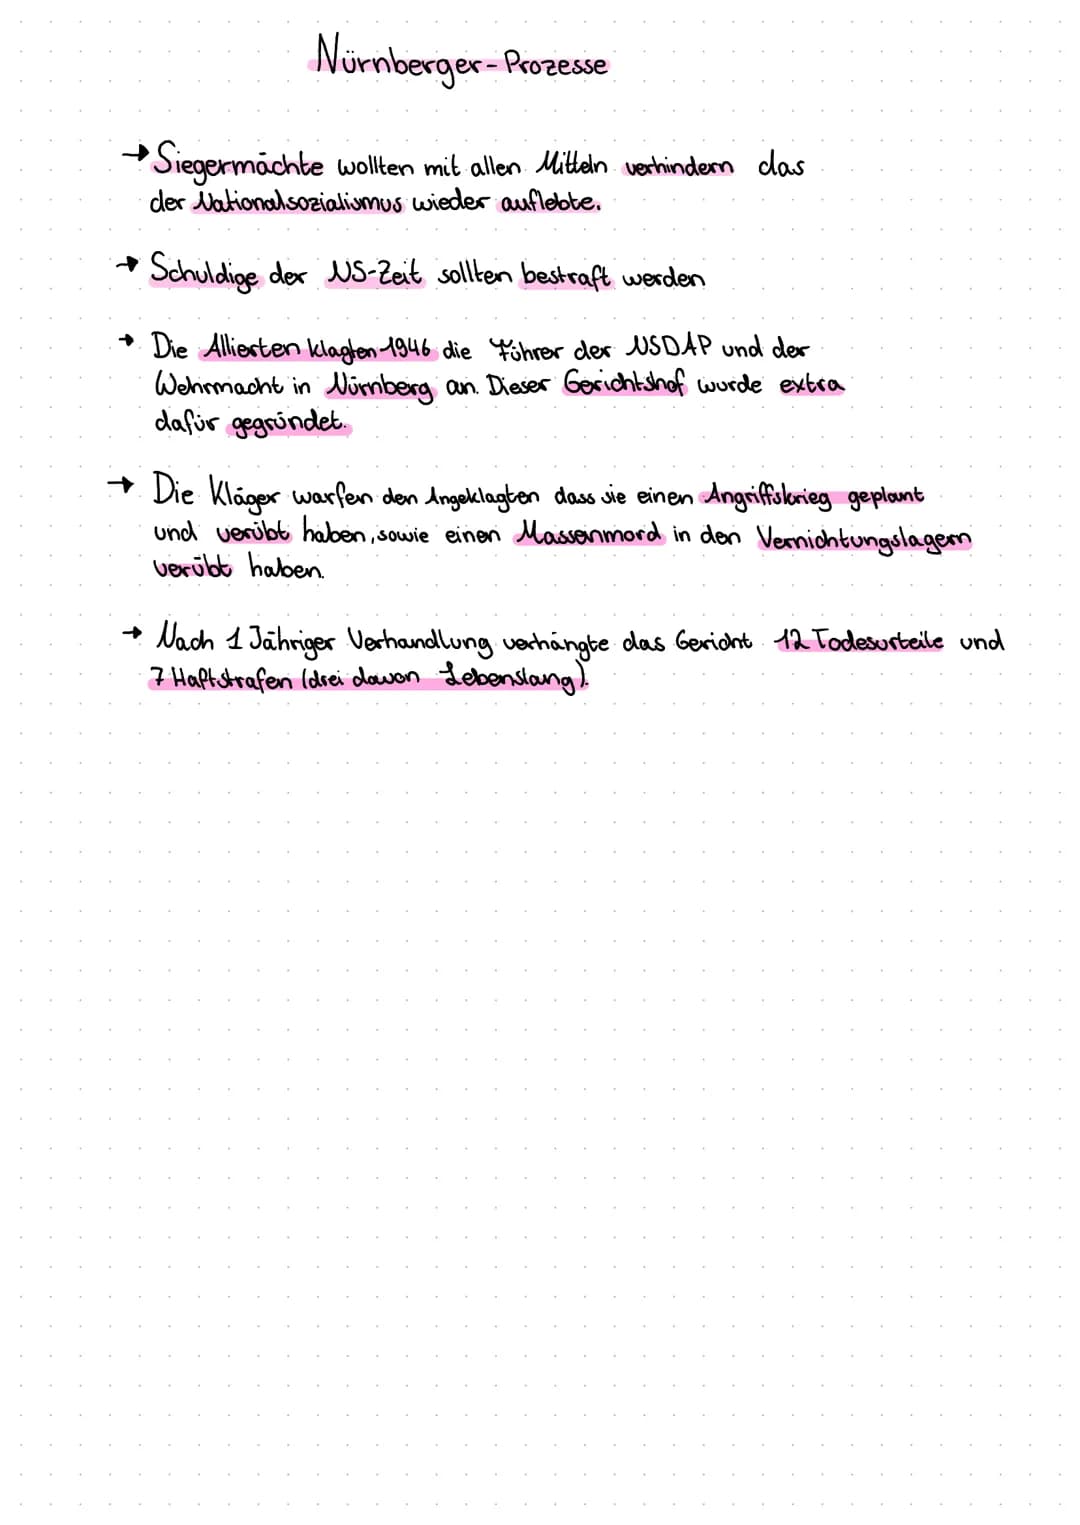 Nürnberger-Prozesse
→ Siegermächte wollten mit allen Mitteln verhindern das
der Nationalsozialismus wieder auflebte.
→ Schuldige der NS-Zeit sollten bestraft werden
→ Die Allierten klagten 1946 die Führer der NSDAP und der
Wehrmacht in Nürnberg an. Dieser Gerichtshof wurde extra
dafür gegründet.
→ Die Kläger warfen den Angeklagten dass sie einen Angriffskrieg geplant
und verübt haben, sowie einen Massenmord in den Vernichtungslagern
verübt haben.
→ Nach 1 Jähriger Verhandlung verhängte das Gericht 12 Todesurteile und
7 Haftstrafen (drei davon Lebenslang).